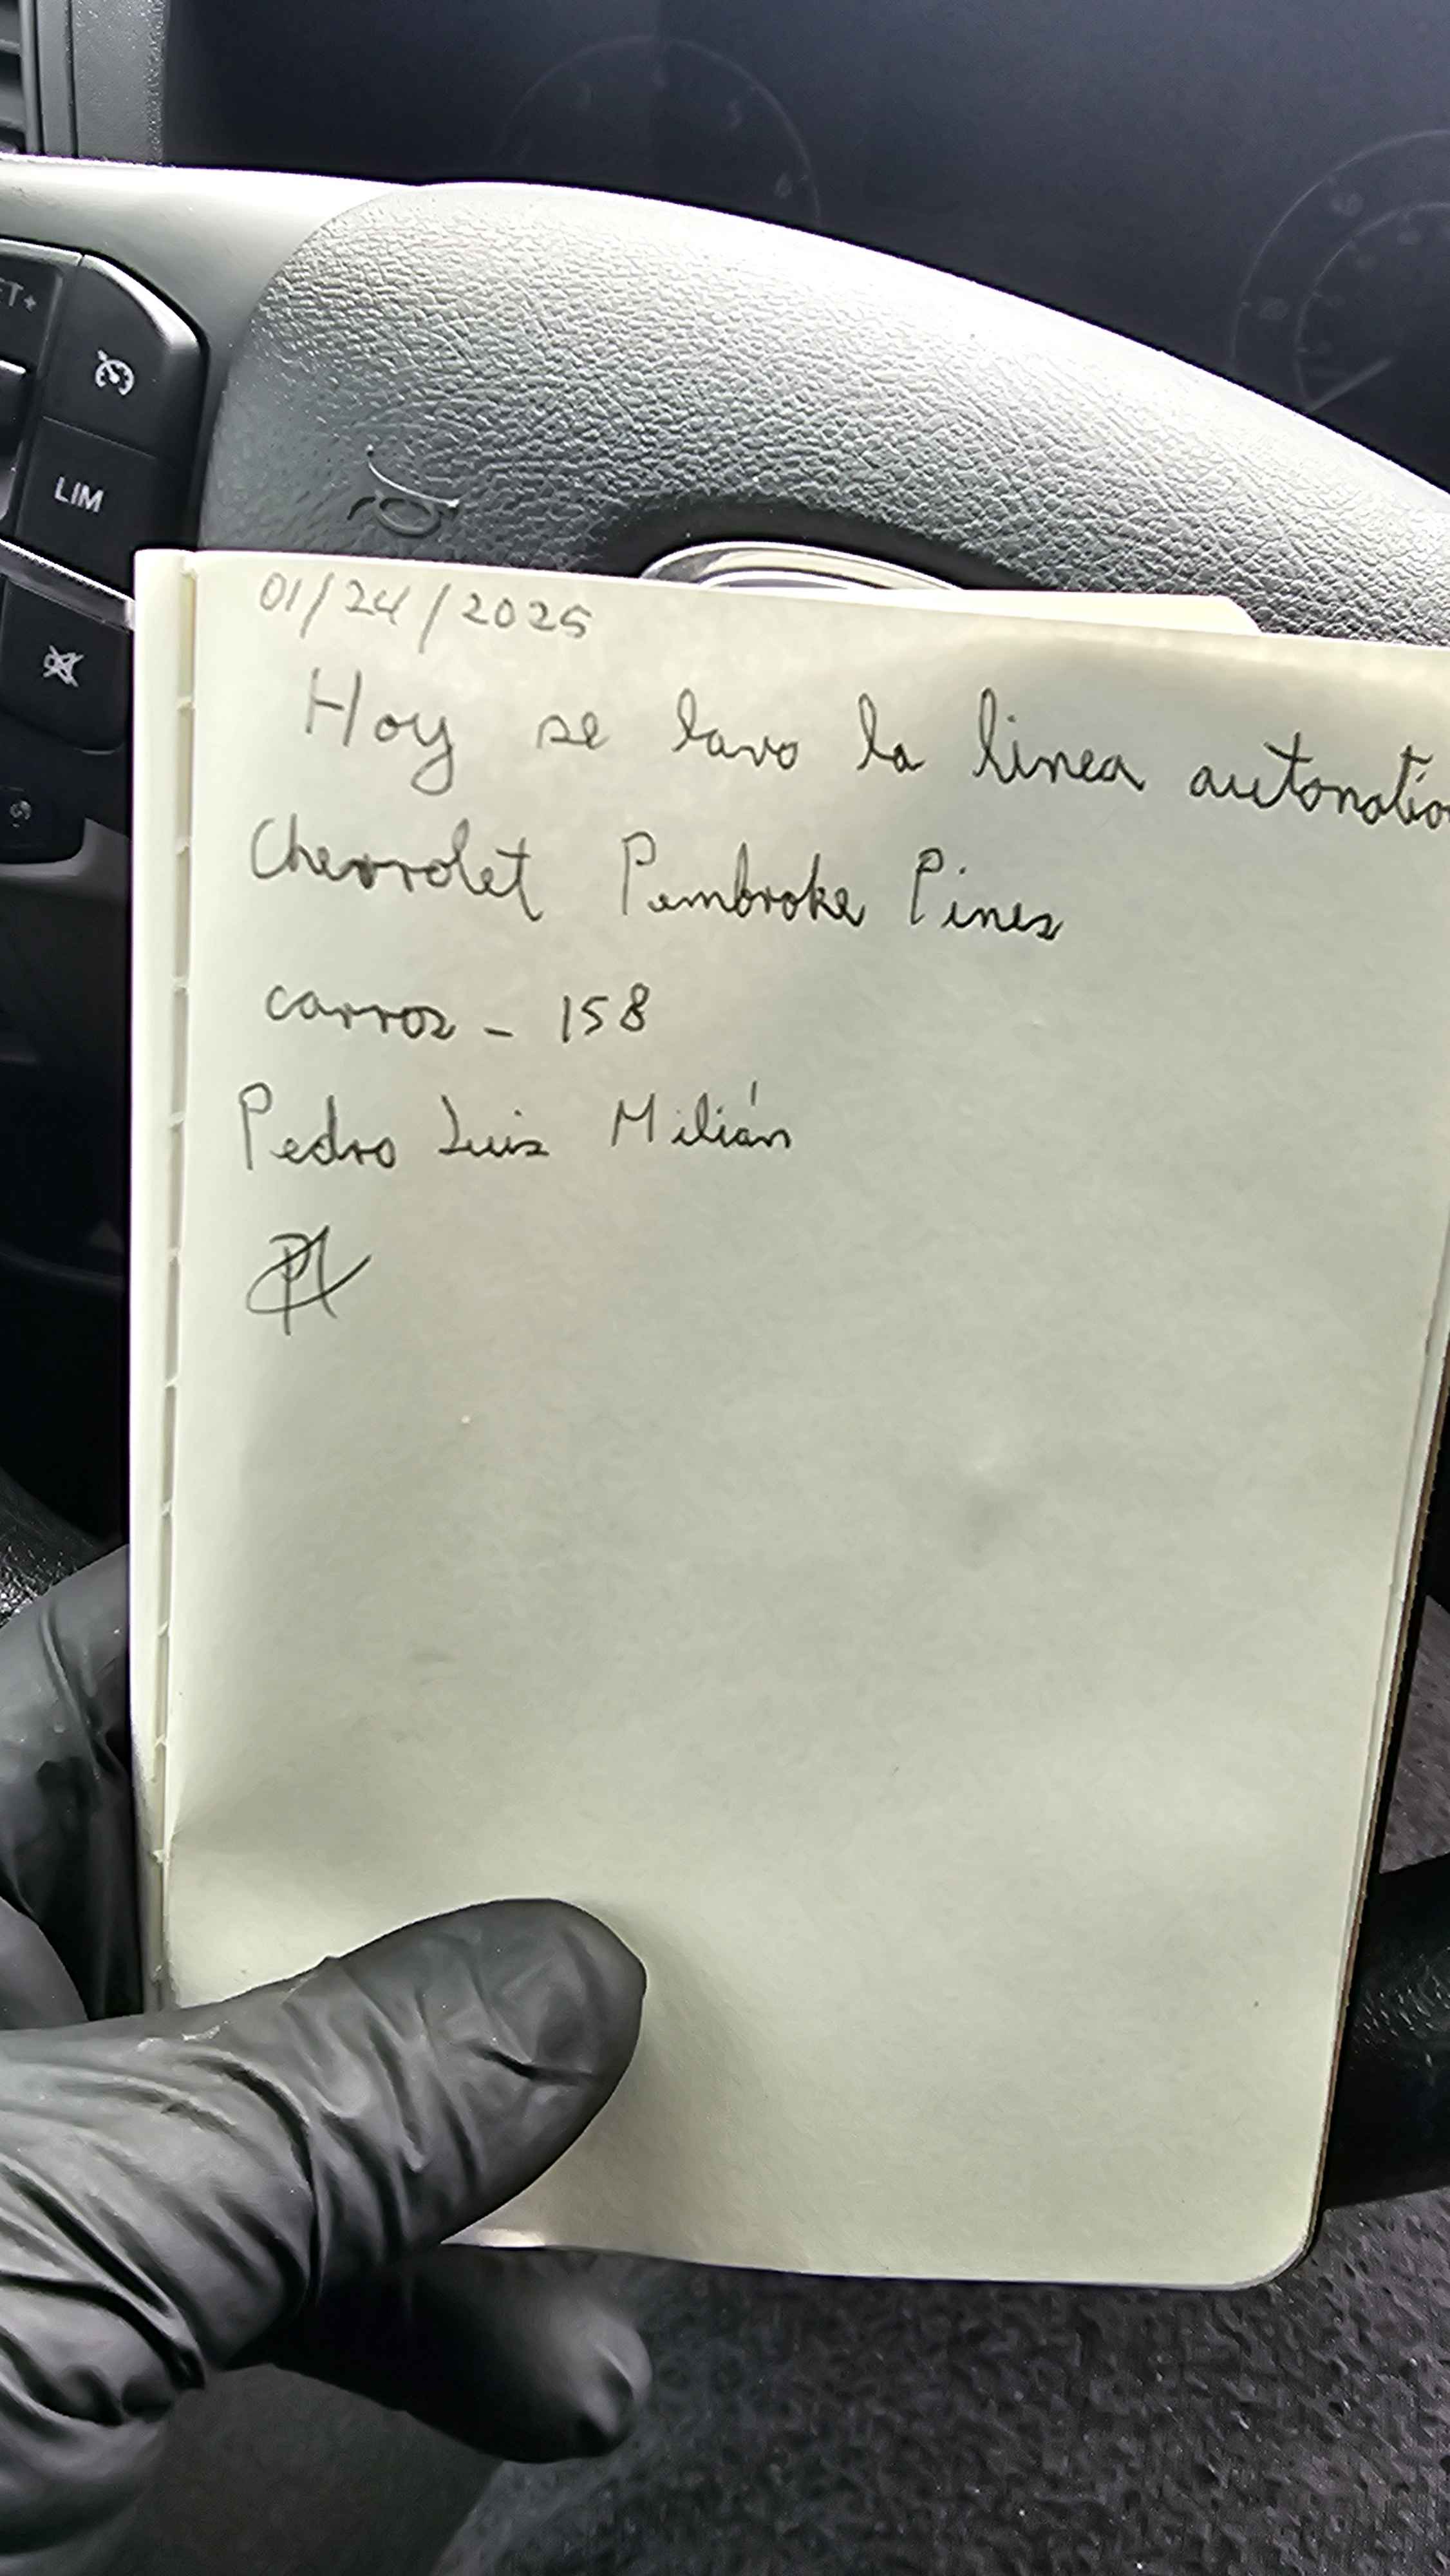 ET+
LIM
01/24/2025
Hoy se lavo la linea
Chevrolet Pembroke Pines
carros - 158
Pedro Luis Milián